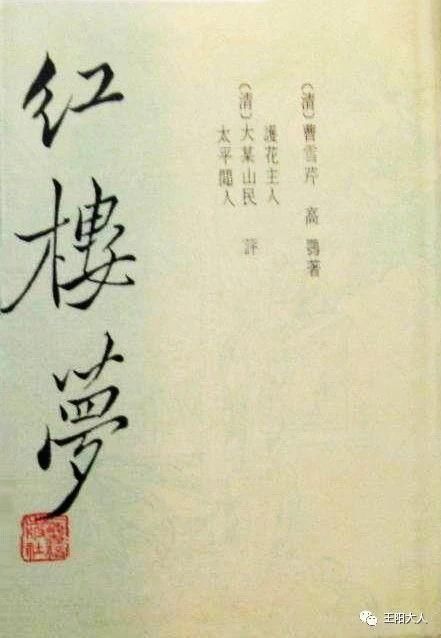 （清）曹雪芹 高鹗著
護花主人
（清）大某山民 評
太平閒人
红樓夢
王阳大人